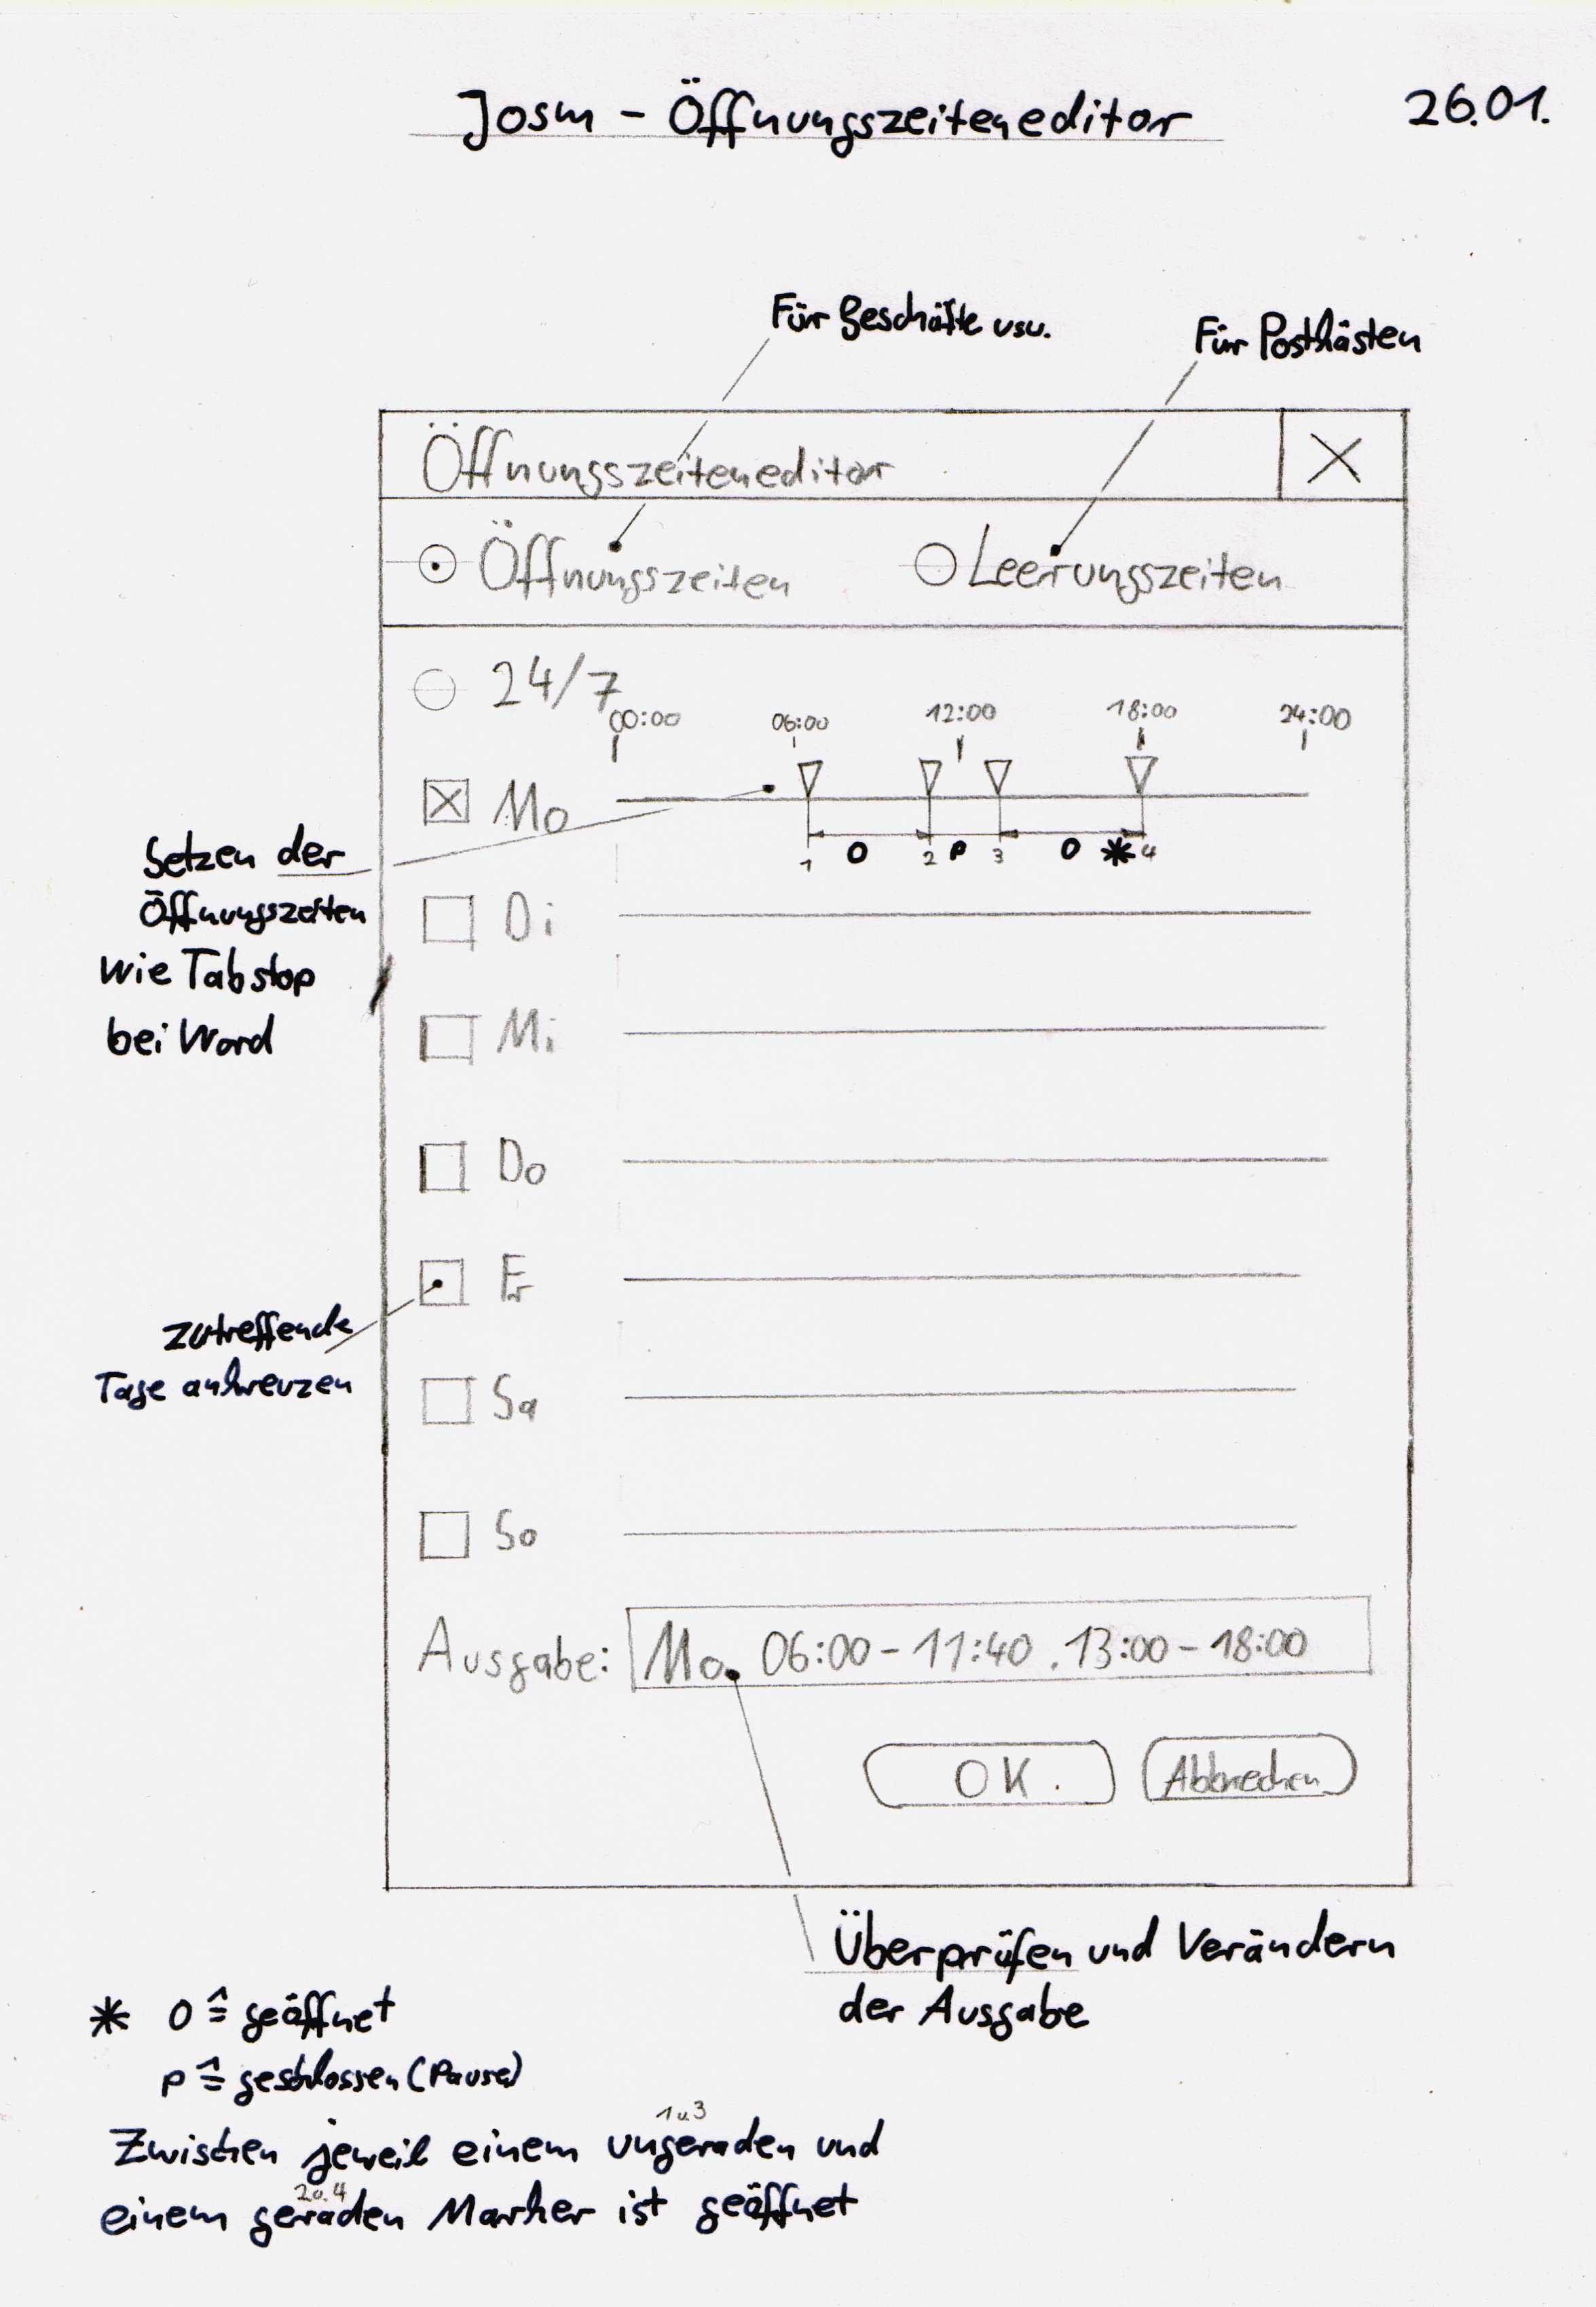 Josm - Öffnungszeiteneditor
26.01.
Für Geschäfte usw.
Für Postkästen
Öffnungszeiteneditor X
Öffnungszeiten
Leerungszeiten
24/7
00:00 06:00 12:00 18:00 24:00
Mo
1 O 2 P 3 O * 4
Setzen der
Öffnungszeiten
wie Tabstop
bei Word
Di
Mi
Do
Fr
zutreffende
Tage ankreuzen
Sa
So
Ausgabe: Mo. 06:00 - 11:40 , 13:00 - 18:00
OK
Abbrechen
Überprüfen und Verändern
der Ausgabe
* O ≙ geöffnet
P ≙ geschlossen (Pause)
1 u. 3
Zwischen jeweils einem ungeraden und
2 u. 4
einem geraden Marker ist geöffnet